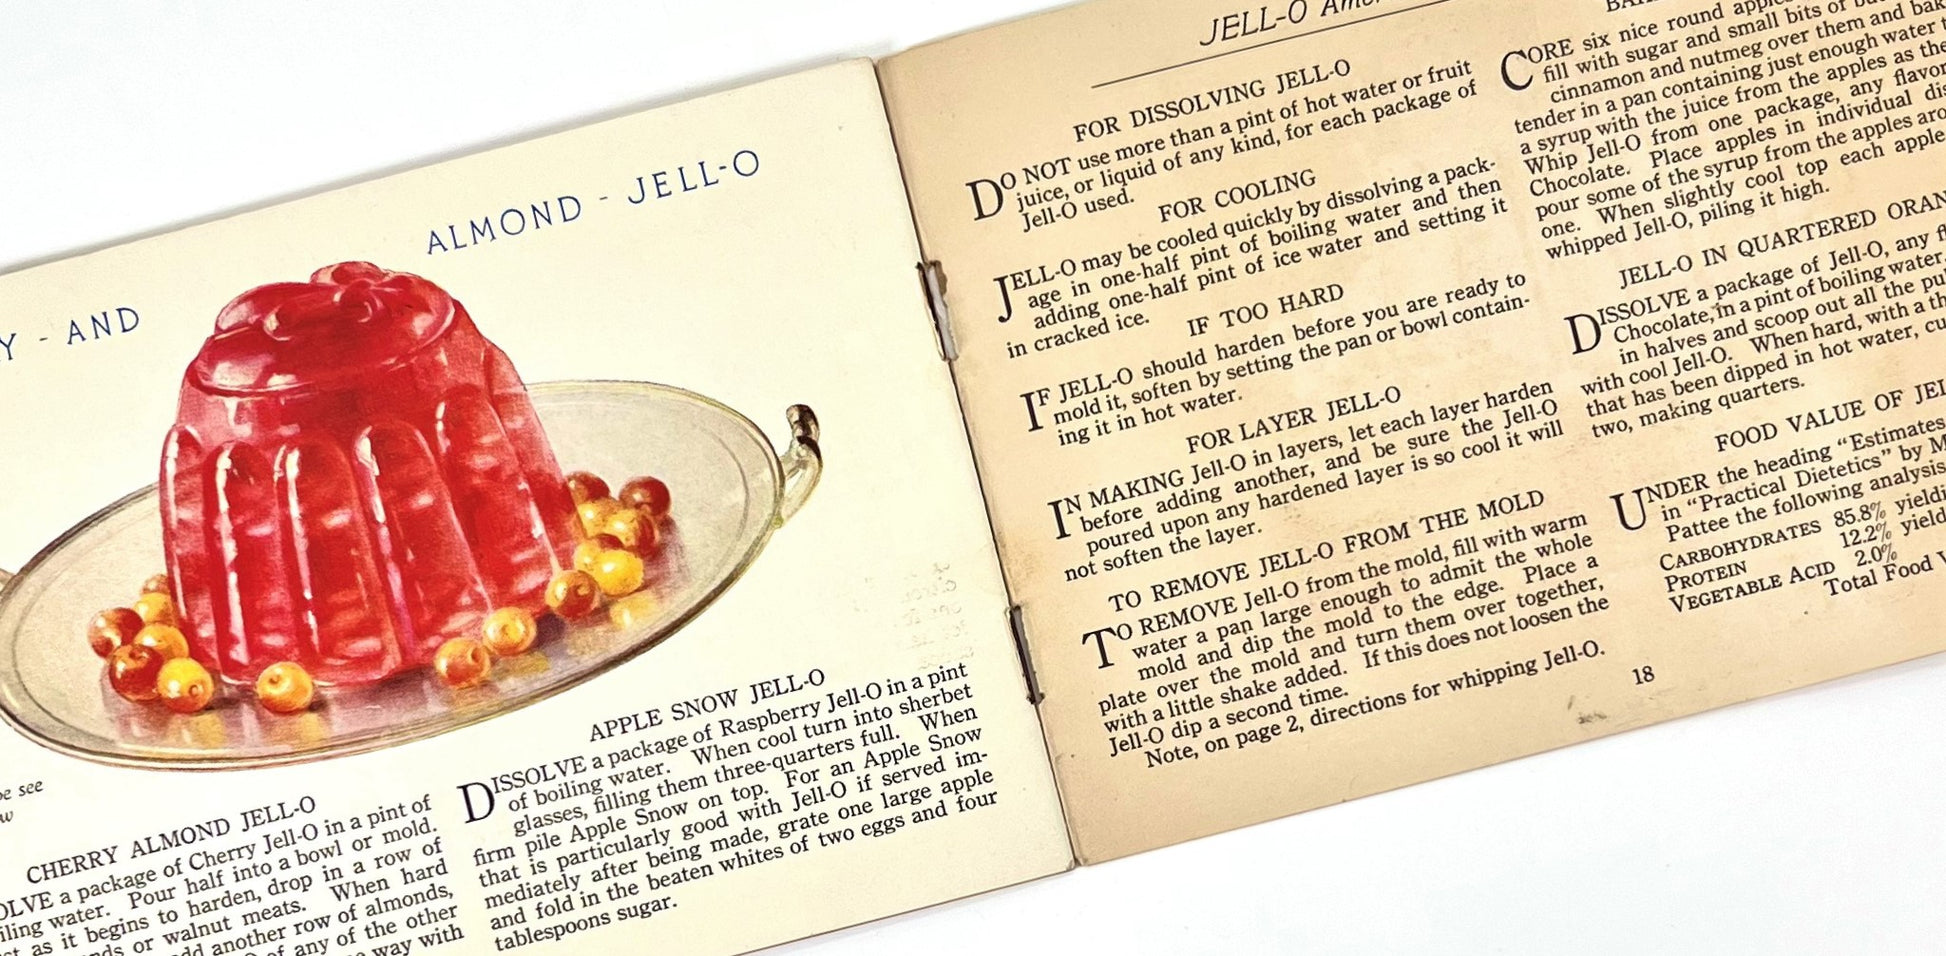 Y - AND
ALMOND - JELL-O
see
CHERRY ALMOND JELL-O
a package of Cherry Jell-O in a pint of
water. Pour half into a bowl or mold.
as it begins to harden, drop in a row of
or walnut meats. When hard
another row of almonds,
of any of the other
way with
APPLE SNOW JELL-O
DISSOLVE a package of Raspberry Jell-O in a pint
of boiling water. When cool turn into sherbet
glasses, filling them three-quarters full. When
firm pile Apple Snow on top. For an Apple Snow
that is particularly good with Jell-O if served im-
mediately after being made, grate one large apple
and fold in the beaten whites of two eggs and four
tablespoons sugar.
JELL-O
FOR DISSOLVING JELL-O
DO NOT use more than a pint of hot water or fruit
juice, or liquid of any kind, for each package of
Jell-O used.
FOR COOLING
JELL-O may be cooled quickly by dissolving a pack-
age in one-half pint of boiling water and then
adding one-half pint of ice water and setting it
in cracked ice.
IF TOO HARD
IF JELL-O should harden before you are ready to
mold it, soften by setting the pan or bowl contain-
ing it in hot water.
FOR LAYER JELL-O
IN MAKING Jell-O in layers, let each layer harden
before adding another, and be sure the Jell-O
poured upon any hardened layer is so cool it will
not soften the layer.
TO REMOVE JELL-O FROM THE MOLD
TO REMOVE Jell-O from the mold, fill with warm
water a pan large enough to admit the whole
mold and dip the mold to the edge. Place a
plate over the mold and turn them over together,
with a little shake added. If this does not loosen the
Jell-O dip a second time.
Note, on page 2, directions for whipping Jell-O.
CORE six nice round
fill with sugar and small bits of
cinnamon and nutmeg over them and
tender in a pan containing just enough water
a syrup with the juice from the apples as the
Whip Jell-O from one package, any flavor
Chocolate. Place apples in individual
pour some of the syrup from the apples
one. When slightly cool top each apple
whipped Jell-O, piling it high.
JELL-O IN QUARTERED
DISSOLVE a package of Jell-O, any
Chocolate, in a pint of boiling water.
in halves and scoop out all the
with cool Jell-O. When hard, with a
that has been dipped in hot water,
two, making quarters.
FOOD VALUE OF
UNDER the heading "Estimates
in "Practical Dietetics" by
Pattee the following analysis
CARBOHYDRATES 85.8%
PROTEIN 12.2%
VEGETABLE ACID 2.0%
Total Food
18